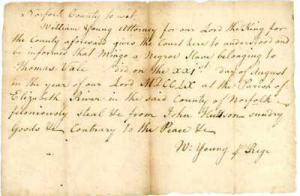 Norfolk County to wit
William Young Attorney for our Lord the King for
the County aforesaid gives the Court here to understand and
be informed that Mingo a Negroe Slave belonging to
Thomas Vale did on the XXI day of August
in the year of our Lord MDCCLX at the Parish of
Elizabeth River in the said County of Norfolk
feloniously steal &c from John Hutson sundry
Goods &c Contrary to the Peace &c
Wm Young